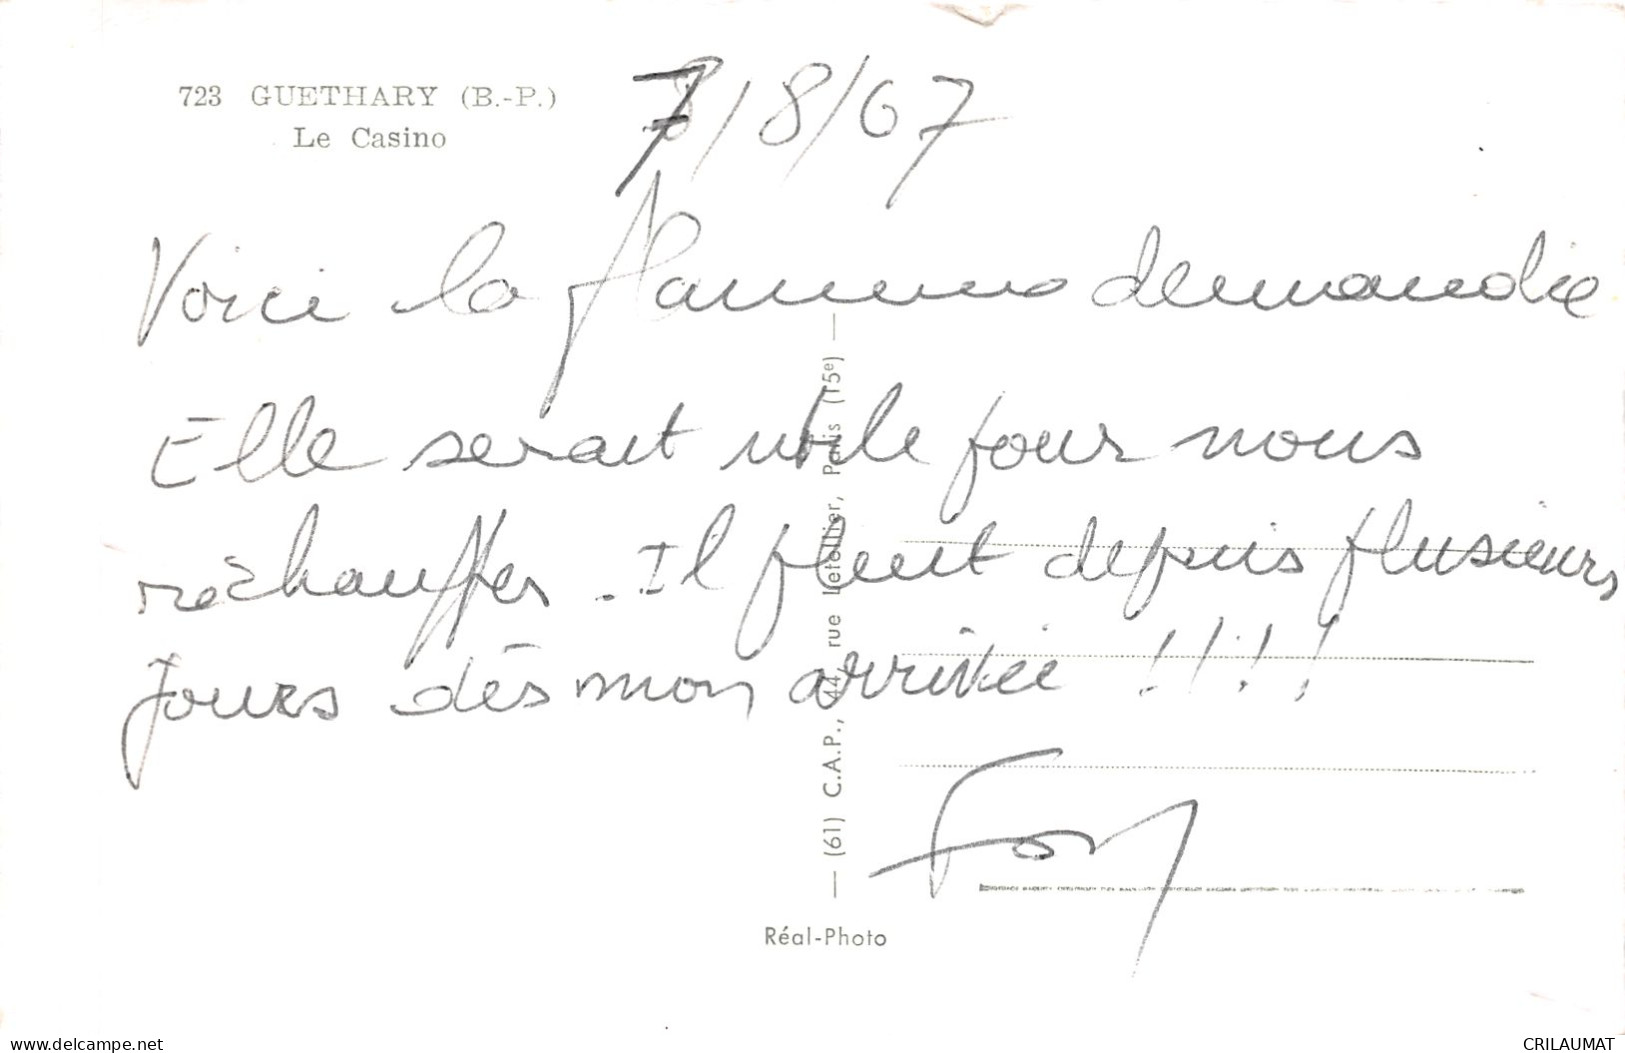 723 GUETHARY (B.-P.)
Le Casino
7/8/67
Voici la flamme demandée
Elle serait utile pour nous
réchauffer. Il pleut depuis plusieurs
jours dès mon arrivée !!!!
— (61) C.A.P., 44, rue Letellier, Paris (15e) —
Réal-Photo
www.delcampe.net
CRILAUMAT